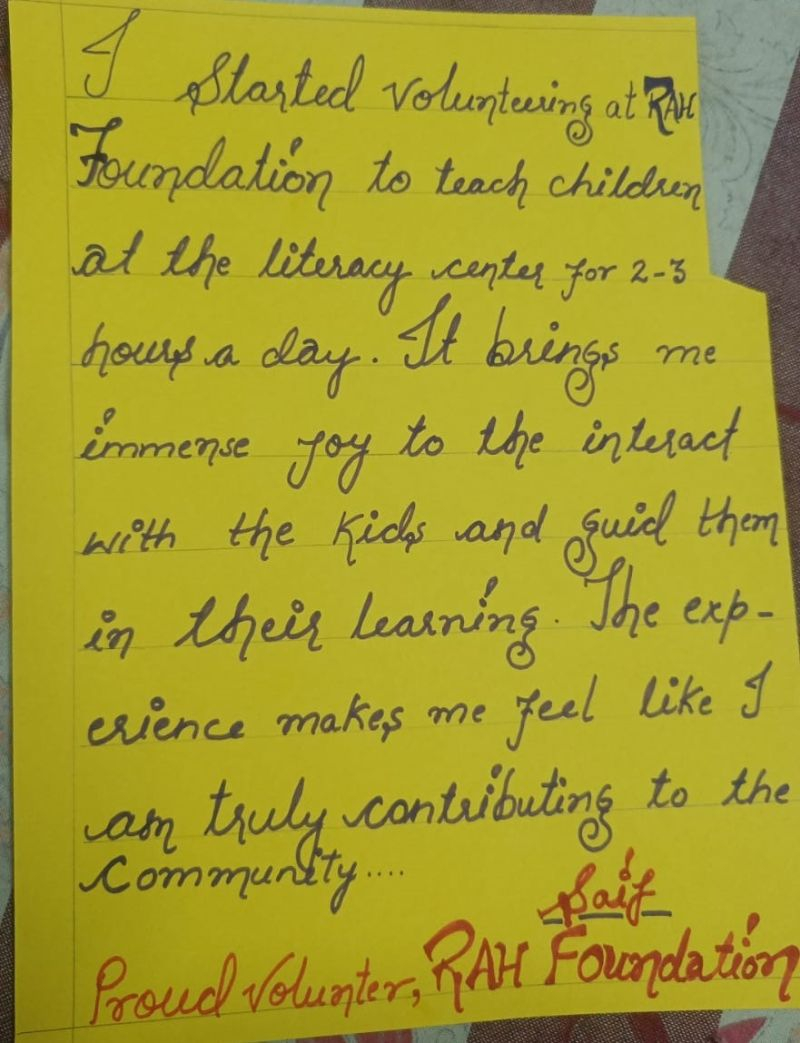 I Started volunteering at RAH
Foundation to teach children
at the literacy center for 2-3
hours a day. It brings me
immense joy to the interact
with the kids and guid them
in their learning. The exp-
erience makes me feel like I
am truly contributing to the
community....
Saif
Proud Volunter, RAH Foundation